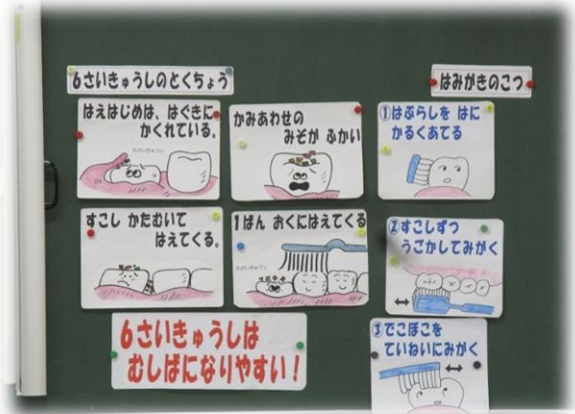 6さいきゅうしのとくちょう
はえはじめは、はぐきに
かくれている。
かみあわせの
みぞが ふかい
すこし かたむいて
はえてくる。
1ばん おくにはえてくる
6さいきゅうしは
むしばになりやすい!
はみがきのこつ
①はぶらしを はに
かるくあてる
②すこしずつ
うごかしてみがく
③でこぼこを
ていねいにみがく